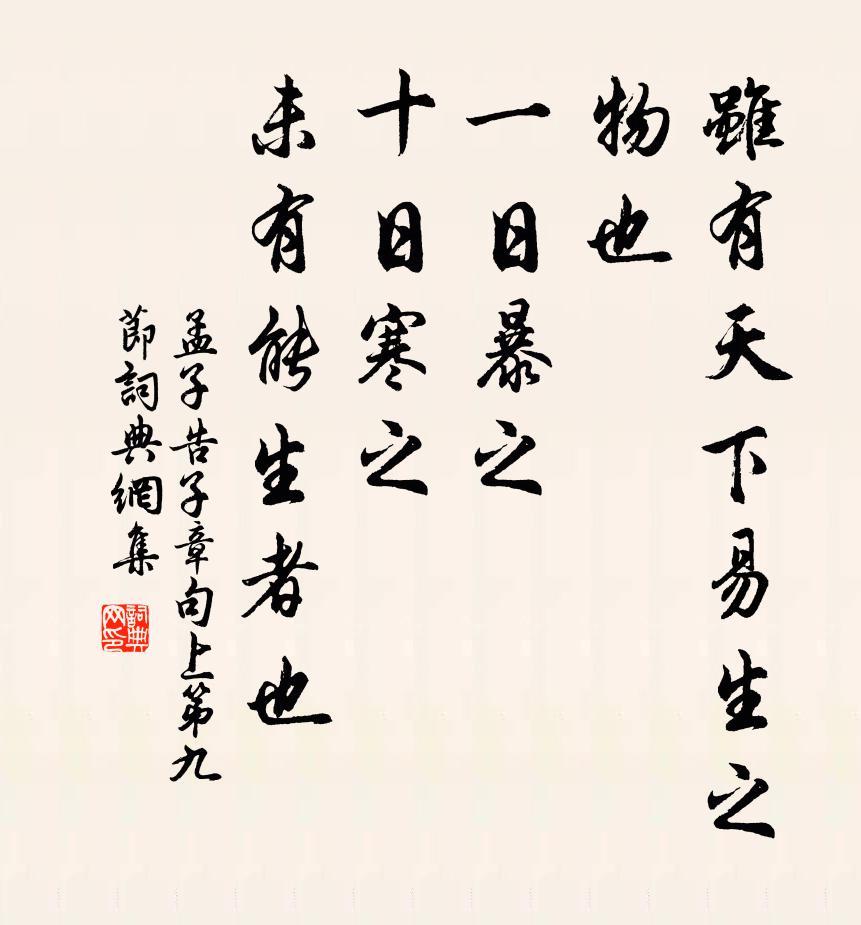 雖有天下易生之
物也
一日暴之
十日寒之
未有能生者也
孟子告子章句上第九
節詞典網集
詞典
网印